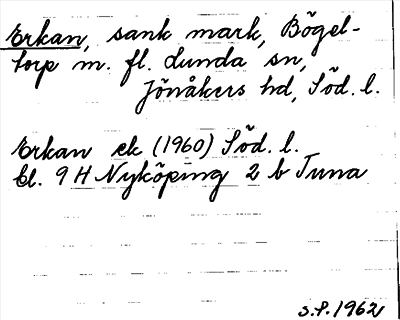 Erkan, sank mark, Bögel-
torp m. fl. Lunda sn,
Jönåkers hd, Söd. l.
Erkan ek (1960) Söd. l.
bl. 9 H Nyköping 2 b Tuna
S.P. 1962